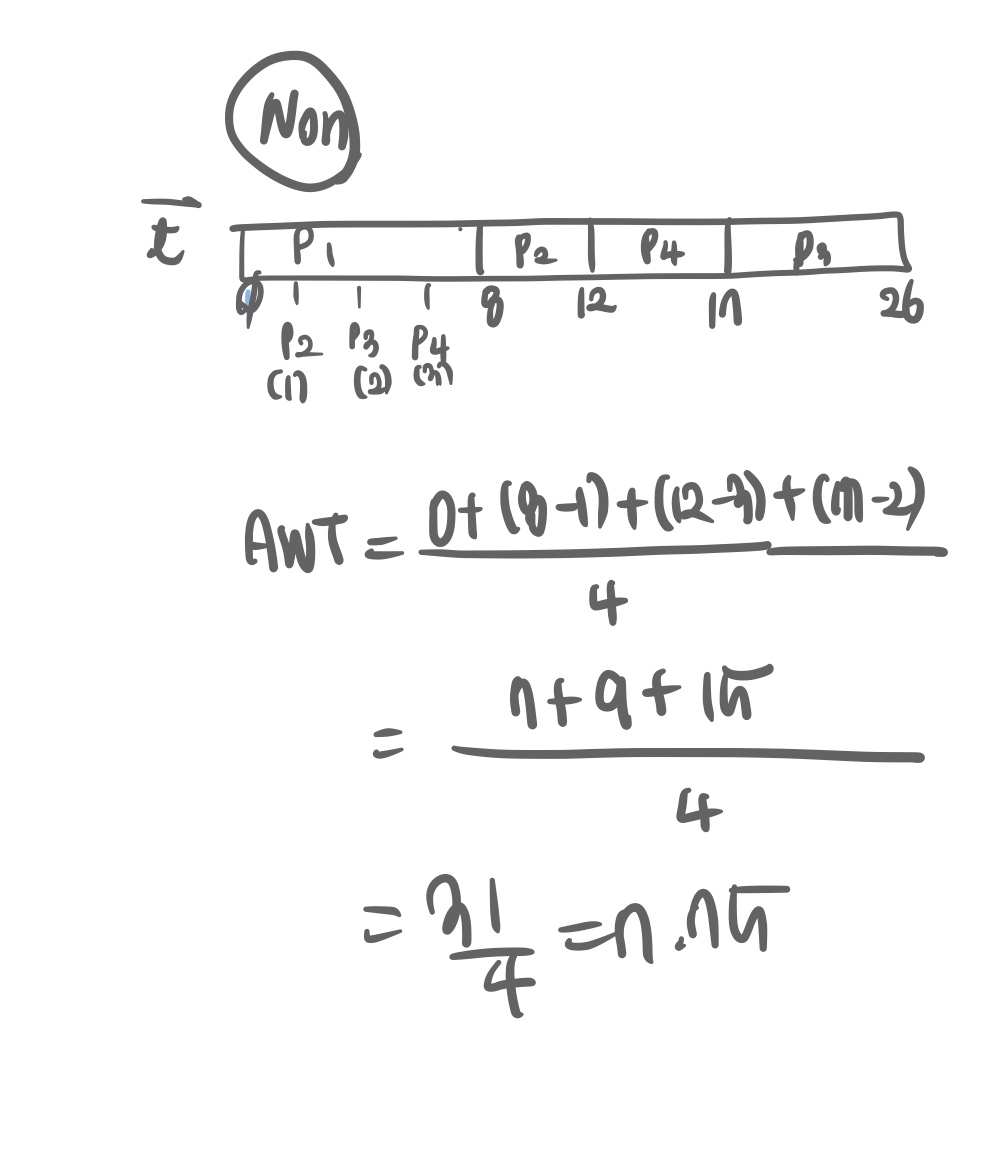 Non
t
P1 P2 P4 P3
0 8 12 17 26
P2 P3 P4
(1) (2) (3)
AWT = 0 + (8-1) + (12-3) + (17-2) / 4
= 7 + 9 + 15 / 4
= 31/4 = 7.75